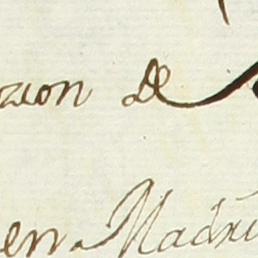 zion de
en Madri